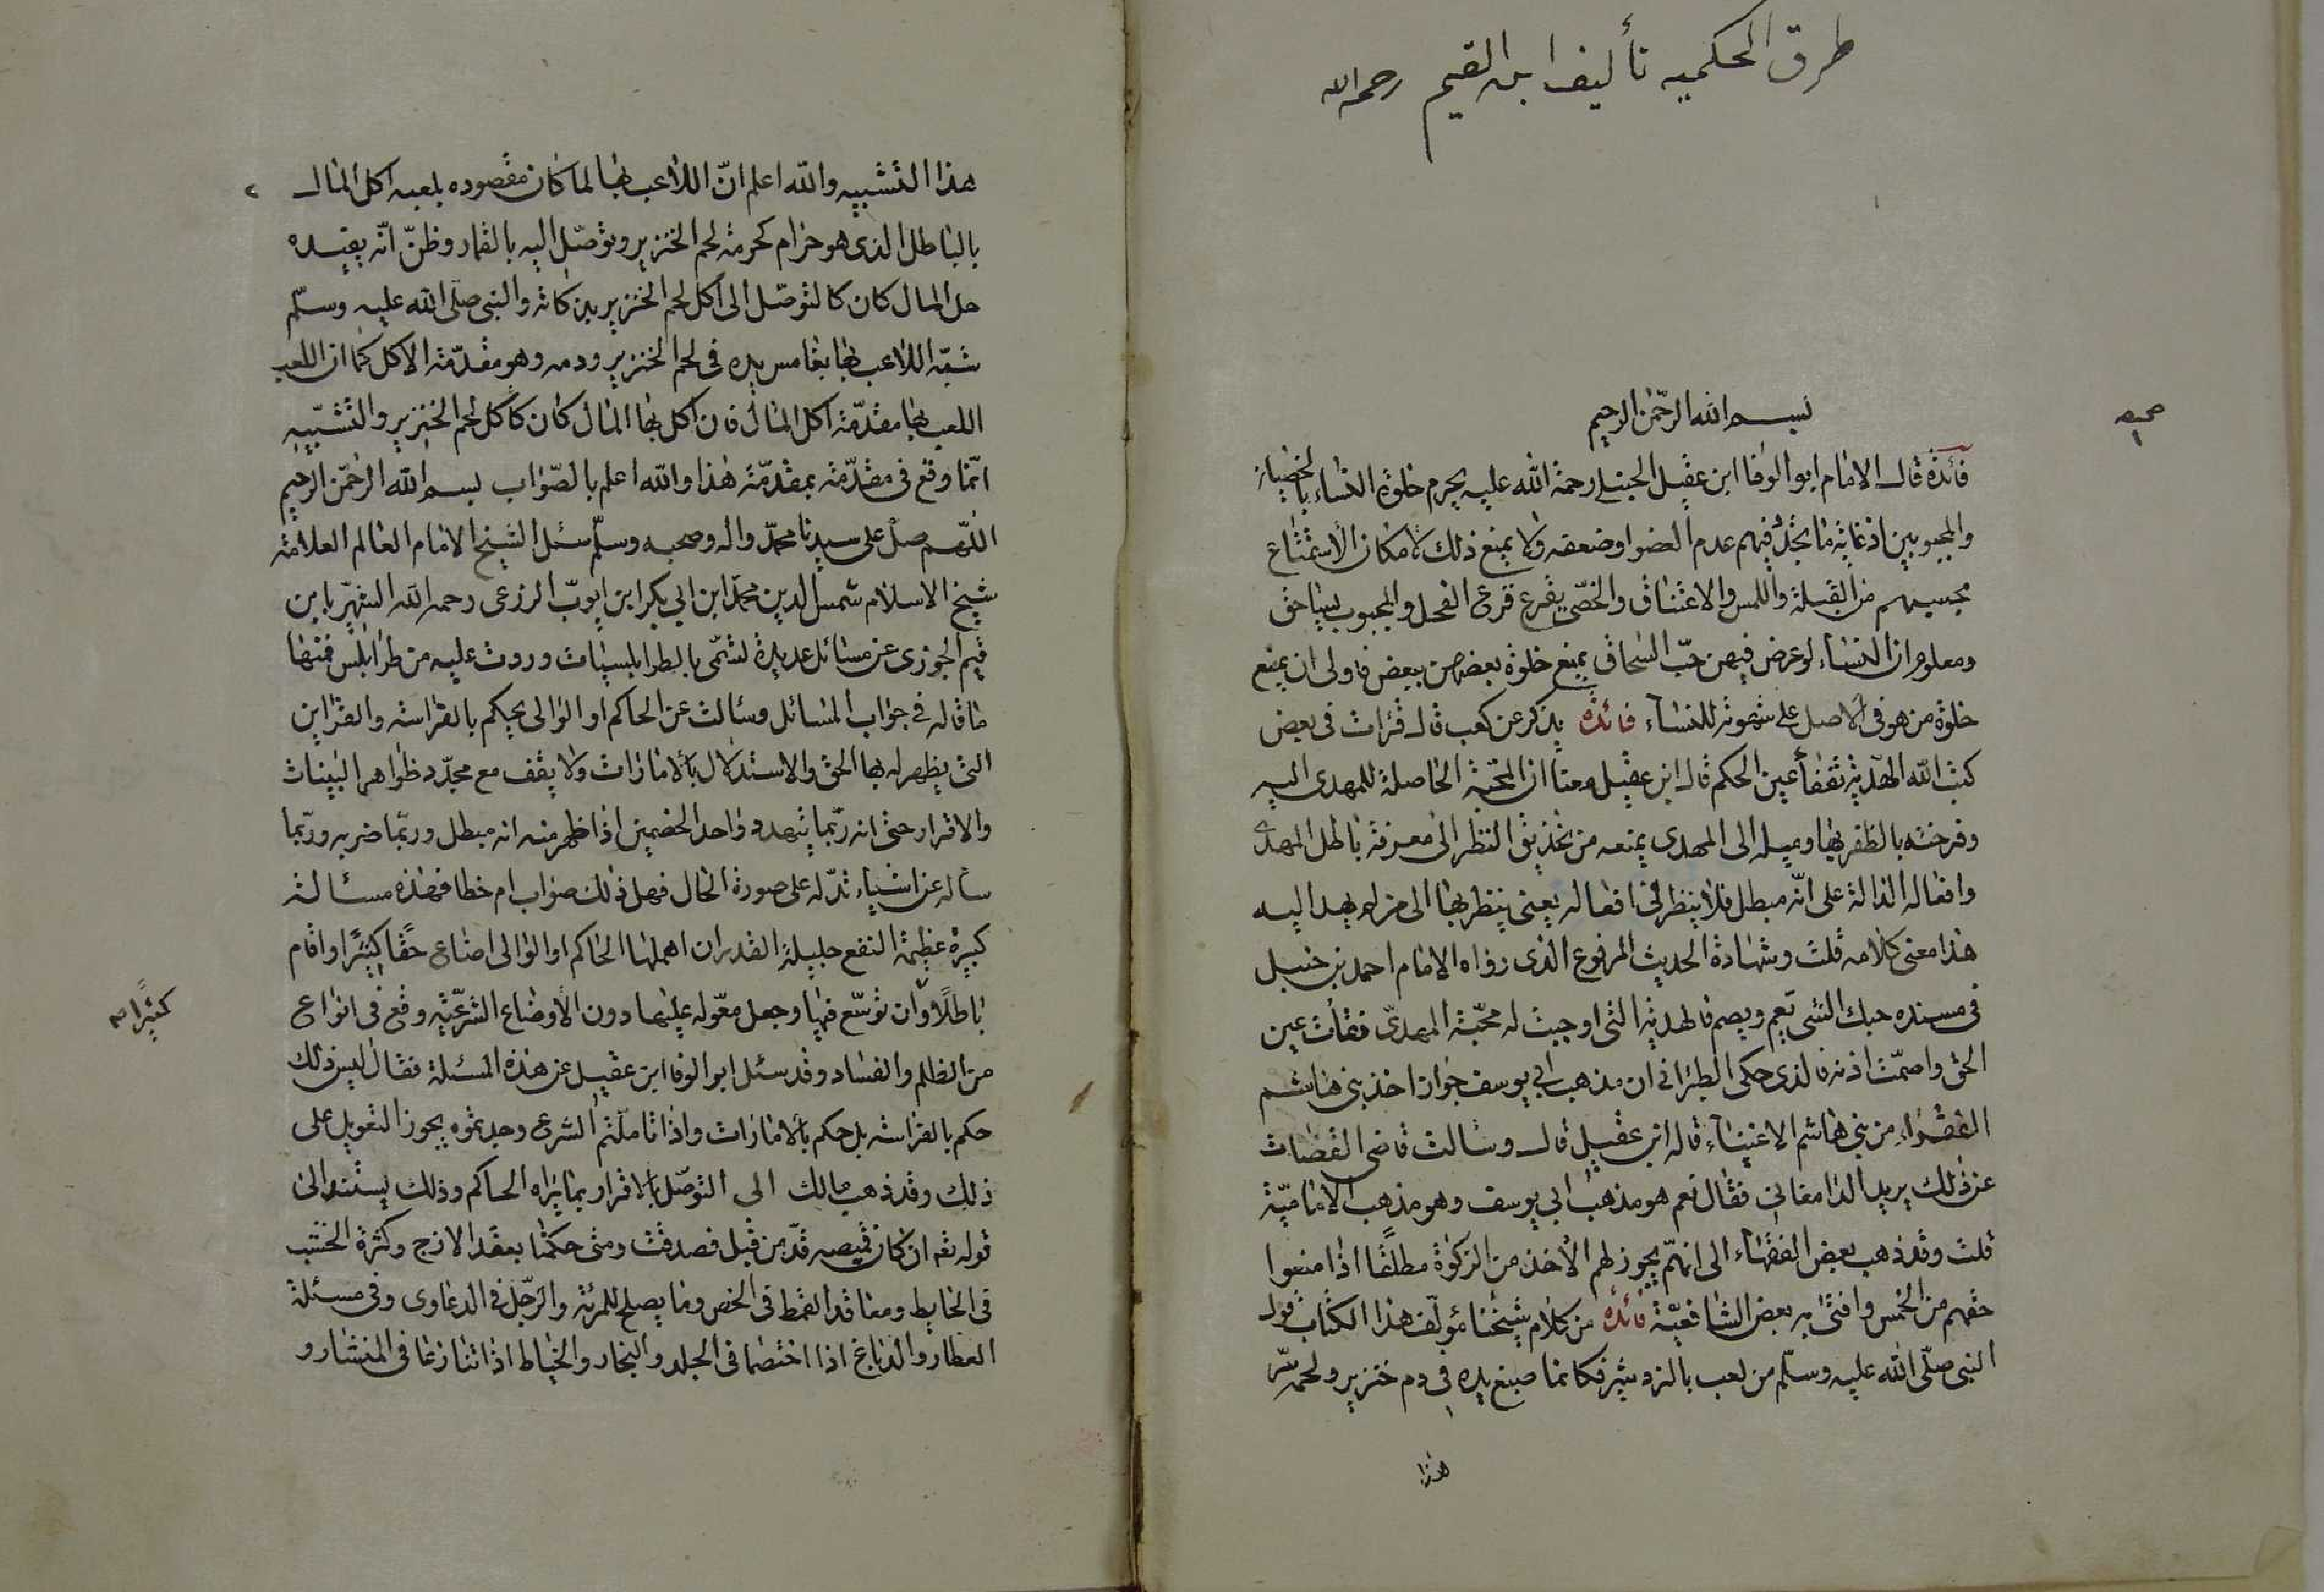 طرق الحكميه تأليف ابن القيم رحمه الله
صحيفه ١
بسم الله الرحمن الرحيم
فائدة قال الامام ابو الوفا ابن عقيل الحنبلى رحمة الله عليه يحرم خلوة النساء بالخصيان
والمجبوبين اذ غاية ما يجد فيهم عدم العضو او ضعفه ولا يمنع ذلك لامكان الاستمتاع
بحسبهم من القبلة واللمس والاعتناق والخصّى يقرع قرع الفحل والمجبوب يساحق
ومعلوم ان النساء لو عرض فيهن حبّ السحاق يمنع خلوة بعضهن ببعض فاولى ان يمنع
خلوة من هو فى الاصل على شهوته للنساء فائدة يذكر عن كعب قال قرات فى بعض
كتب الله الهدية تفقأ عين الحكم قال ابن عقيل معنا ان المحبّة الحاصلة للمهدى اليه
وفرحته بالظفر بها وميله الى المهدى يمنعه من تحذيق النظر الى معرفة باطل المهدى
وافعاله الدالة على انّه مبطل فلا ينظر فى افعاله بعين ينظر بها الى من لم يهد اليه
هذا معنى كلامه قلت وشهادة الحديث المرفوع الذى رواه الامام احمد بن حنبل
فى مسنده حبك الشى يعم ويصم فالهدية التى اوجبت له محبّة المهدىّ فقات عين
الحق واصمّت اذنه فالذى حكى الطبرانى ان مذهب ابى يوسف جواز اخذ بنى هاشم
الفقراء من بنى هاشم الاغنياء قال ابن عقيل قال وسالت قاضى القضات
عن ذلك يريد الدامغانى فقال نعم هو مذهب ابى يوسف وهو مذهب الاماميّة
قلت وقد ذهب بعض الفقهاء الى انهمّ يجوز لهم الاخذ من الزكوة مطلقًا اذا منعوا
حقهم من الخمس وافتى به بعض الشافعيّة فائدة من كلام شيخنا مؤلف هذا الكتاب قول
النبى صلّى الله عليه وسلّم من لعب بالنرد شير فكانما صبغ يده فى دم خنزير ولحمه سّر
هذا
٢
هذا التشبيه والله اعلم انّ اللاعب بها لما كان مقصوده بلعبه اكل المال
بالباطل الذى هو حرام كحرمة لحم الخنزير وتوصّل اليه بالقمار وظنّ انّه يفيده
حل المال كان كالتوصّل الى اكل لحم الخنزير بذكاته والنبى صلّى الله عليه وسلّم
شبّه اللاعب بها بغامس يده فى لحم الخنزير ودمه وهو مقدّمة الاكل كما ان اللعب
اللعب بها مقدّمة اكل المال فان اكل بها المال كان كاكل لحم الخنزير والتشبيه
انّما وقع فى مقدّمة بمقدّمة هذا والله اعلم بالصّواب بسم الله الرحمن الرحيم
اللّهم صل على سيدنا محمدّ واله وصحبه وسلّم سئل الشيخ الامام العالم العلامة
شيخ الاسلام شمس الدين محمّد ابن ابي بكر ابن ايوبّ الزرعى رحمه الله الشهّير بابن
قيم الجوزى عن مسائل عديدة تسمّى بالطرابلسيات وردت عليه من طرابلس فمنها
ما قاله فى جواب المسائل وسالت عن الحاكم او الوالى يحكم بالفراسة والقراين
التى يظهر له بها الحق والاستدلال بالامارات ولا يقف مع مجرّد ظواهر البينات
والاقرار حتى انه ربّما يتهدد واحد الخصمين اذا ظهر منه انه مبطل وربّما ضربه وربّما
ساله عن اشياء تدّله على صورة الحال فهل ذلك صواب ام خطا فهذه مسالة
كبيرة عظيمة النفع جليلة القدر ان اهملها الحاكم او الوالى اضاع حقًا كثيرًا واقام
باطلًا وان توسّع فيها وجعل معّوله عليها دون الاوضاع الشرعّيّه وقع فى انواع
كثيرًا صح
من الظلم والفساد وقد سئل ابو الوفا ابن عقيل عن هذه المسئلة فقال ليس ذلك
حكم بالفراسة بل حكم بالامارات واذا تاملّتم الشرع وجدتموه يجوز التعويل على
ذلك وقد ذهب مالك الى التوصّل بالاقرار بما يراه الحاكم وذلك يستند الى
قوله تعه ان كان قميصه قدّ من قبل فصدقت ومتى حكمنا بعقد الازج وكثرة الخشب
فى الحايط ومعاقد القمط فى الخص وما يصلح للمرئة والرّجل فى الدعاوى وفى مسئلة
العطار والدباغ اذا اختصما فى الجلد والنجار والخياط اذا تنازعا فى المنشار و